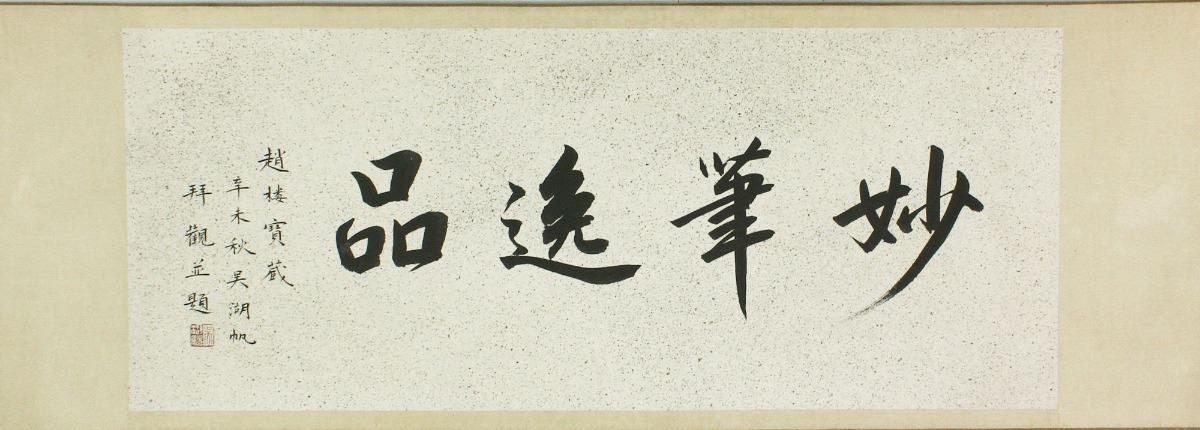 妙筆逸品
趙樓寶蔵
辛未秋吴湖帆
拜觀並題